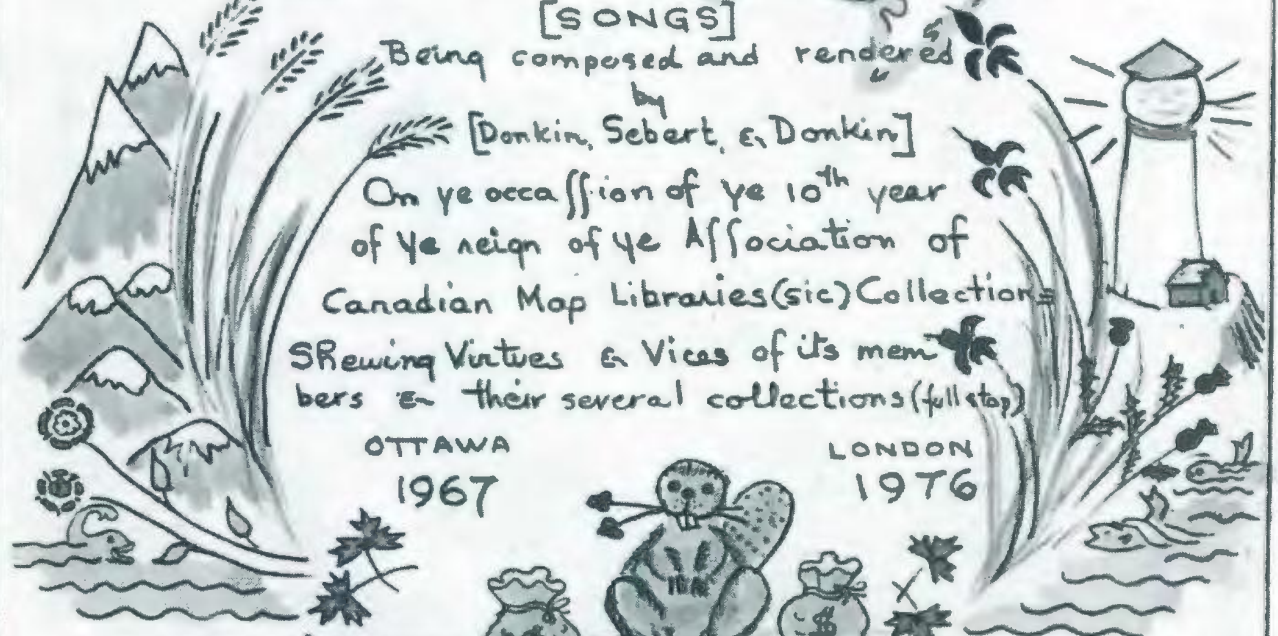 [SONGS]
Being composed and rendered
by
[Donkin, Sebert, & Donkin]
On ye occaſſion of ye 10th year
of ye reign of ye Aſſociation of
Canadian Map Libraries(sic)Collections
SRewing Virtues & Vices of its mem
bers & their several collections(full stop)
OTTAWA LONDON
1967 1976
$ $